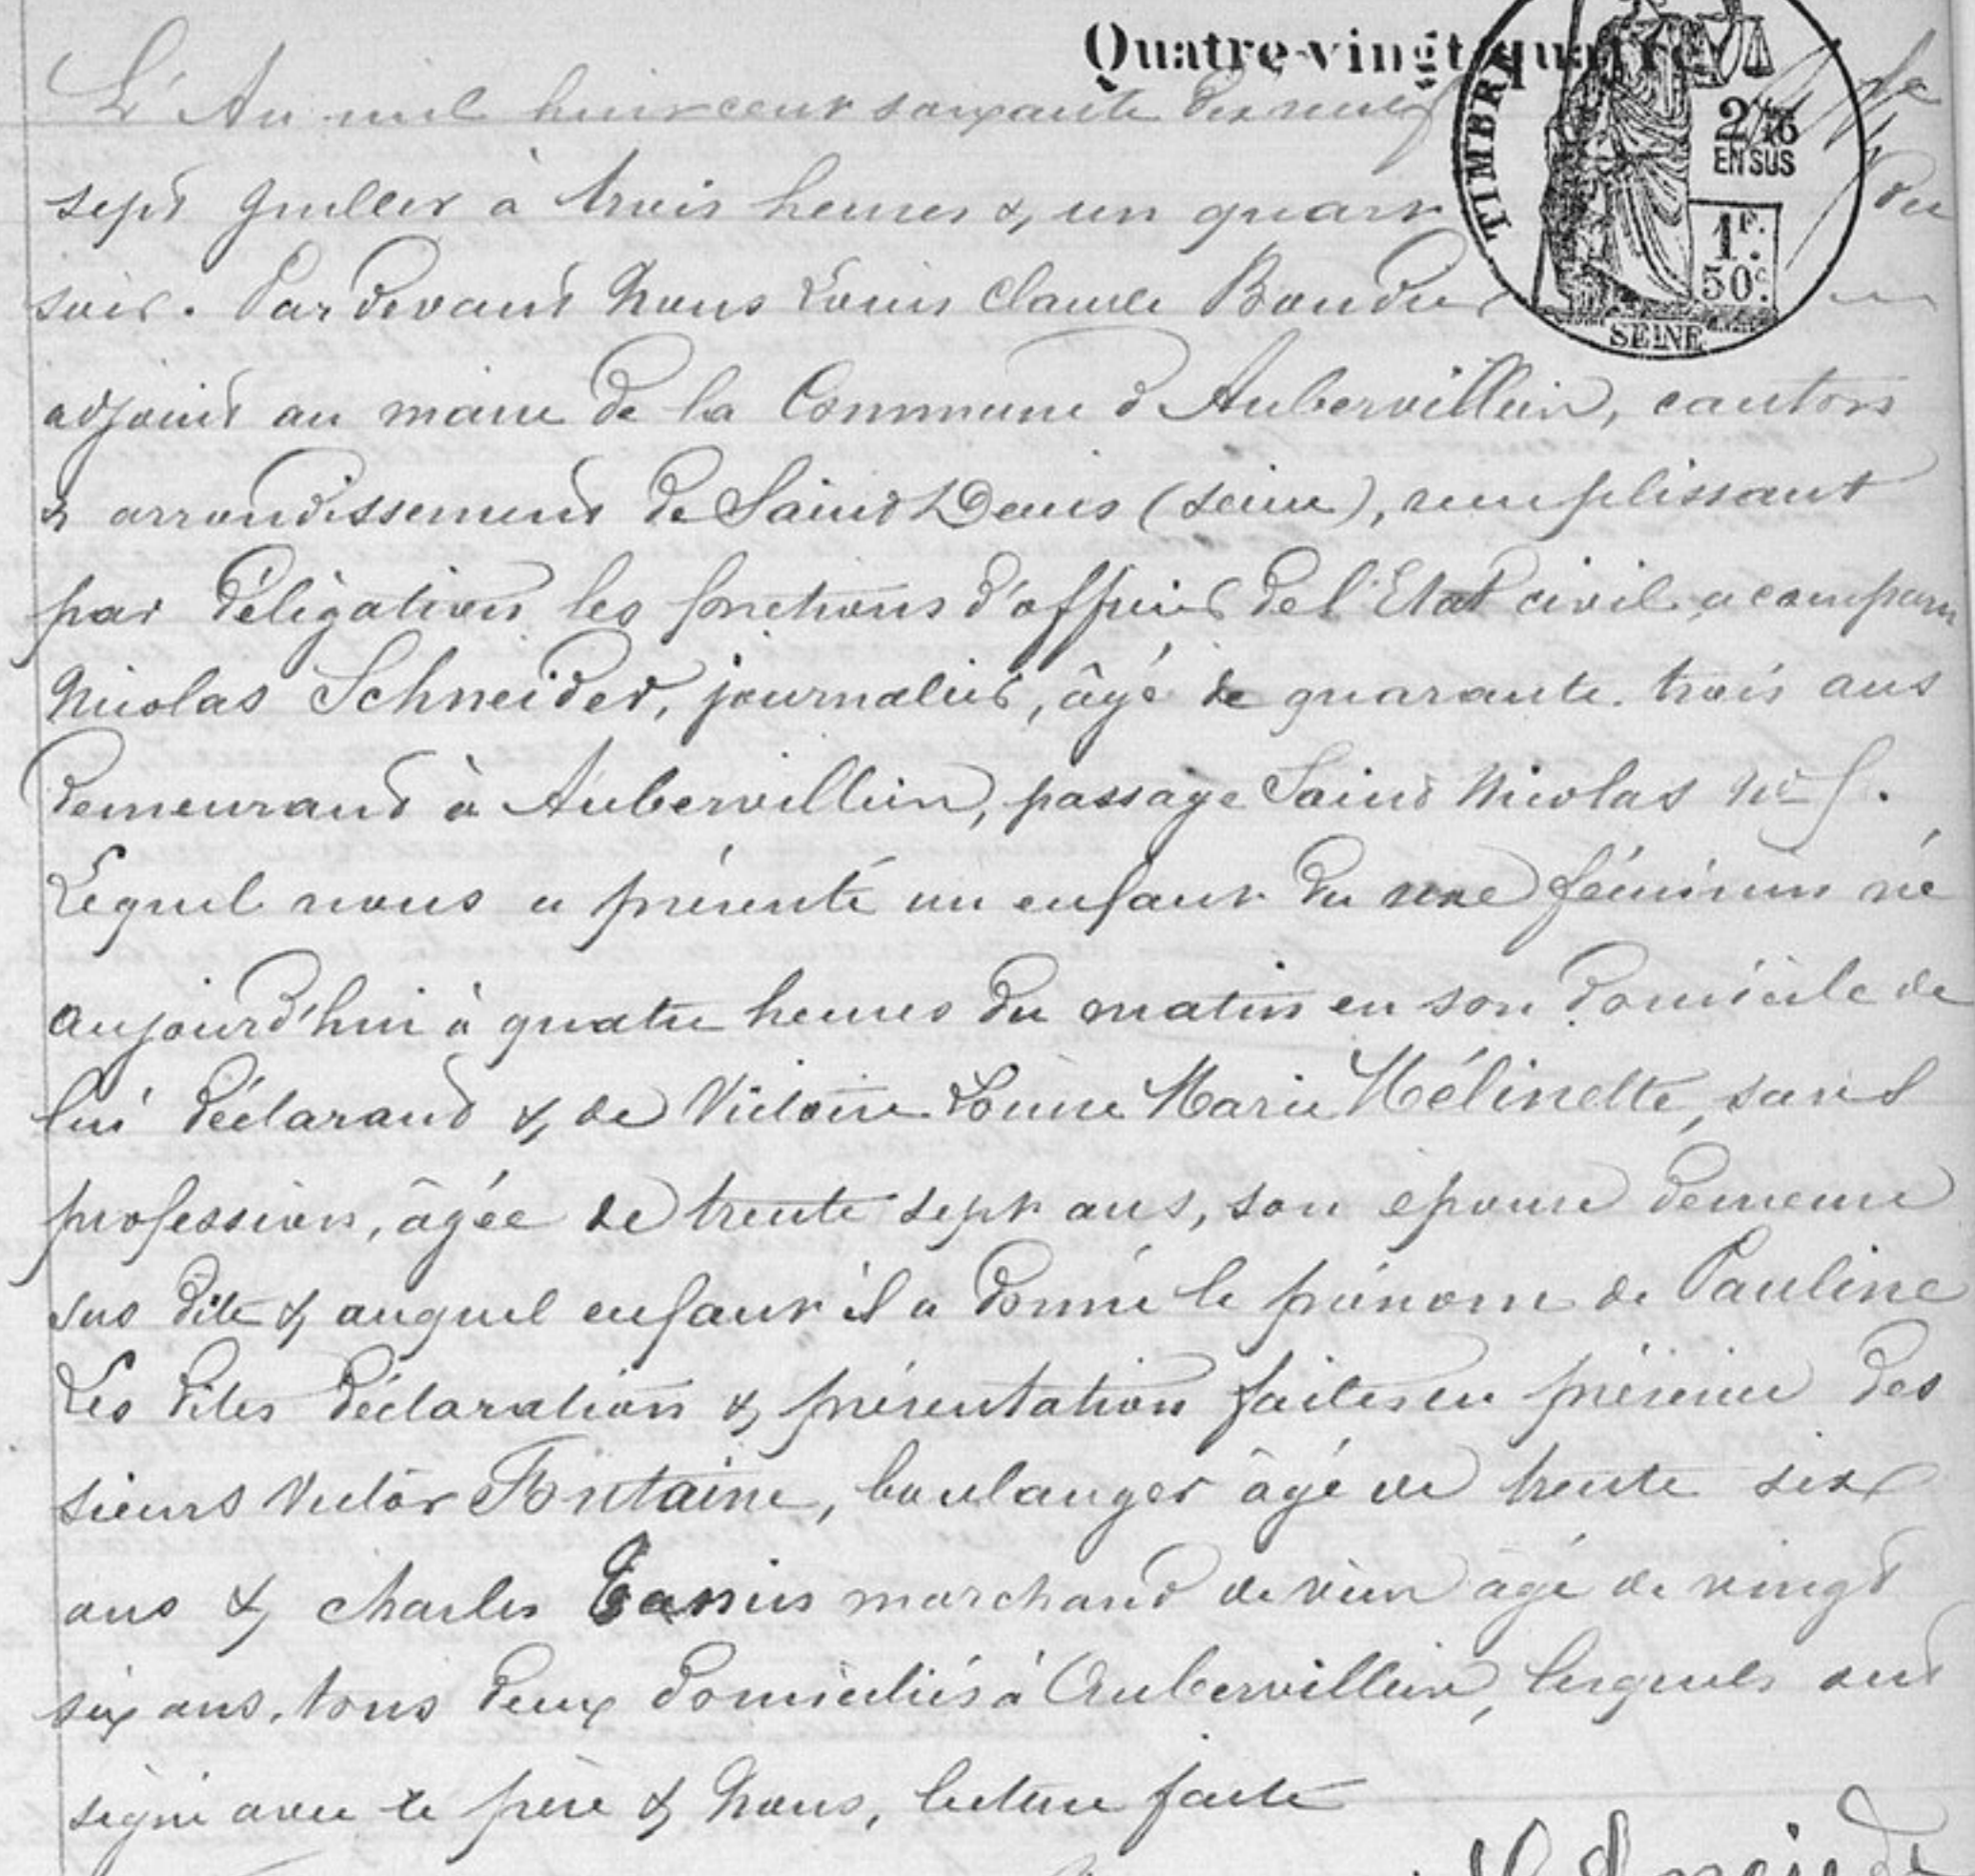 Quatre-vingt-quatre
TIMBRE
2/10
EN SUS
1F.
50c.
SEINE
L'An mil huit cent soixante dix neuf le
sept Juillet à trois heures & un quart du
soir. Par devant Nous Louis Claude Boudier
adjoint au maire de la Commune d'Aubervilliers, canton
& arrondissement de Saint Denis (Seine), remplissant
par déligation les fonctions d'officier de l'Etat civil a comparu
Nicolas Schneider, journalier, âgé de quarante-trois ans
demeurant à Aubervilliers, passage Saint Nicolas No
Lequel nous a présenté un enfant du sexe féminin né
aujourd'hui à quatre heures du matin en son domicile de
lui déclarant & de Victoire Louise Marie Mélinette, sans
profession, âgée de trente sept ans, son épouse demeure
sus dite & auquel enfant il a donné le prénom de Pauline
Les dites déclaration & présentation faites en présence des
sieurs Victor Fontaine, boulanger âgé de trente six
ans & Charles marchand de vin âgé de vingt
six ans, tous deux domiciliés à Aubervilliers, lesquels ont
signé avec le père & Nous, lecture faite
Schneider